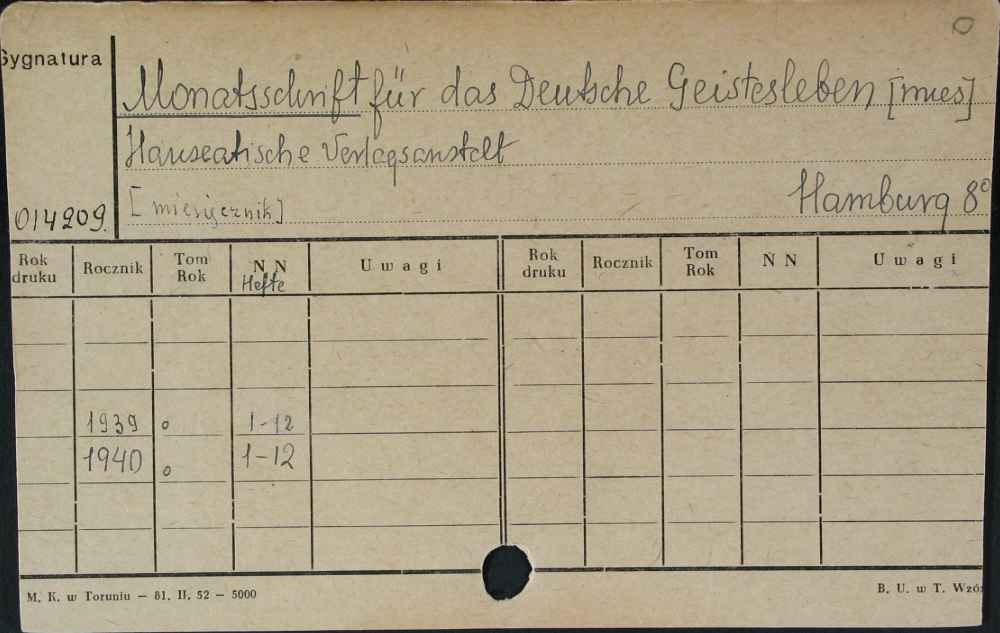 O
Sygnatura
Monatsschrift für das Deutsche Geistesleben [mies]
Hanseatische Verlagsanstalt
[miesięcznik] Hamburg 8°
014209.
Rok druku Rocznik Tom Rok N N Hefte Uwagi Rok druku Rocznik Tom Rok N N Uwagi
1939 o 1-12
1940 o 1-12
M. K. w Toruniu – 81. II. 52 – 5000 B. U. w T. Wzó